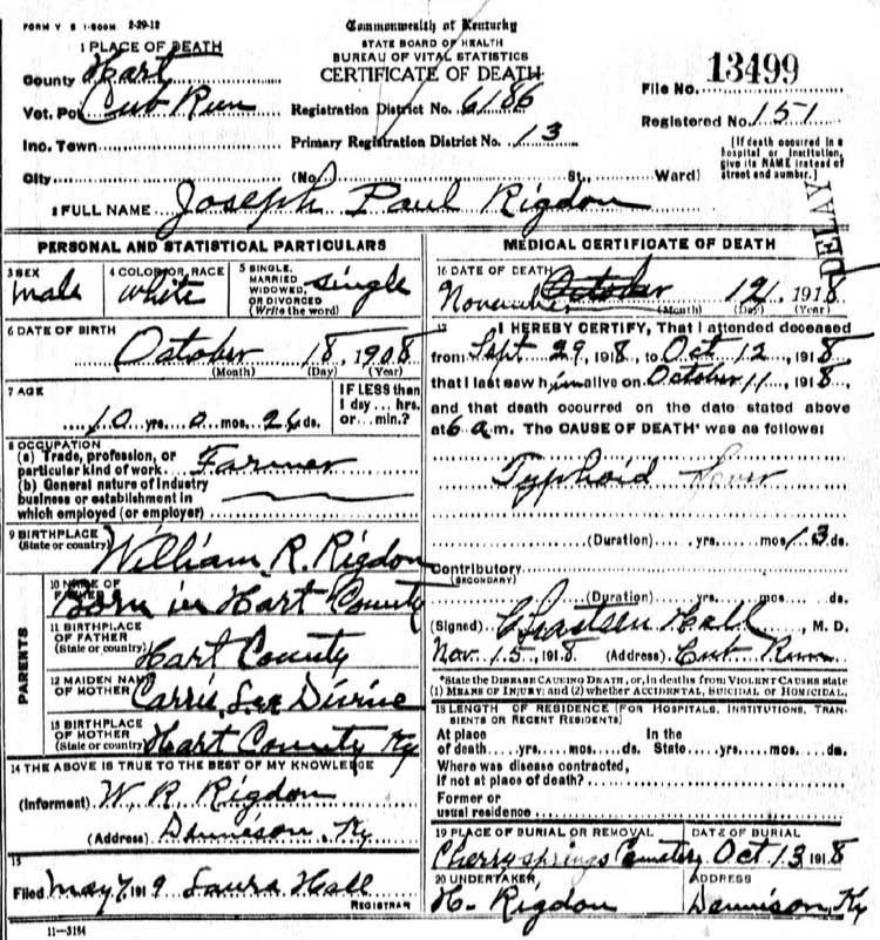 FORM V S 1-500M 2-29-12
Commonwealth of Kentucky
STATE BOARD OF HEALTH
BUREAU OF VITAL STATISTICS
CERTIFICATE OF DEATH
1 PLACE OF DEATH
County Hart
Vot. Pct Cub Run
Inc. Town
City
Registration District No. 6186
Primary Registration District No. 13
(No. St., Ward)
File No. 13499
Registered No. 151
[If death occurred in a hospital or institution, give its NAME instead of street and number.]
DELAY
2 FULL NAME Joseph Paul Rigdon
PERSONAL AND STATISTICAL PARTICULARS
3 SEX
male
4 COLOR OR RACE
white
5 SINGLE, MARRIED WIDOWED, OR DIVORCED (Write the word)
single
6 DATE OF BIRTH
October 18, 1908
(Month) (Day) (Year)
7 AGE
10 yrs. 0 mos. 26 ds.
IF LESS than 1 day ... hrs. or ... min.?
8 OCCUPATION
(a) Trade, profession, or particular kind of work Farmer
(b) General nature of industry business or establishment in which employed (or employer)
9 BIRTHPLACE
(State or country) William R. Rigdon
PARENTS
10 NAME OF FATHER Born in Hart County
11 BIRTHPLACE OF FATHER (State or country) Hart County
12 MAIDEN NAME OF MOTHER Carrie Lee Divine
13 BIRTHPLACE OF MOTHER (State or country) Hart County Ky
14 THE ABOVE IS TRUE TO THE BEST OF MY KNOWLEDGE
(Informent) W. R. Rigdon
(Address) Dennison, Ky
15
Filed May 7, 1919 Laura Hall
REGISTRAR
11-3184
MEDICAL CERTIFICATE OF DEATH
16 DATE OF DEATH October
November 12, 1918
(Month) (Day) (Year)
17 I HEREBY CERTIFY, That I attended deceased
from Sept 29, 1918, to Oct 12, 1918,
that I last saw him alive on October 11, 1918,
and that death occurred on the date stated above
at 6 a.m. The CAUSE OF DEATH* was as follows:
Typhoid Fever
(Duration) yrs. mos. 13 ds.
Contributory
(SECONDARY)
(Duration) yrs. mos. ds.
(Signed) Hall, M. D.
Nov. 15, 1918 (Address) Cub Run
*State the DISEASE CAUSING DEATH, or, in deaths from VIOLENT CAUSES state
(1) MEANS OF INJURY; and (2) whether ACCIDENTAL, SUICIDAL or HOMICIDAL.
18 LENGTH OF RESIDENCE (FOR HOSPITALS, INSTITUTIONS, TRANSIENTS OR RECENT RESIDENTS)
At place of death yrs. mos. ds. In the State yrs. mos. ds.
Where was disease contracted, if not at place of death?
Former or usual residence
19 PLACE OF BURIAL OR REMOVAL
Cherry springs Cemetery
DATE OF BURIAL
Oct 13 1918
20 UNDERTAKER
H. Rigdon
ADDRESS
Dennison, Ky